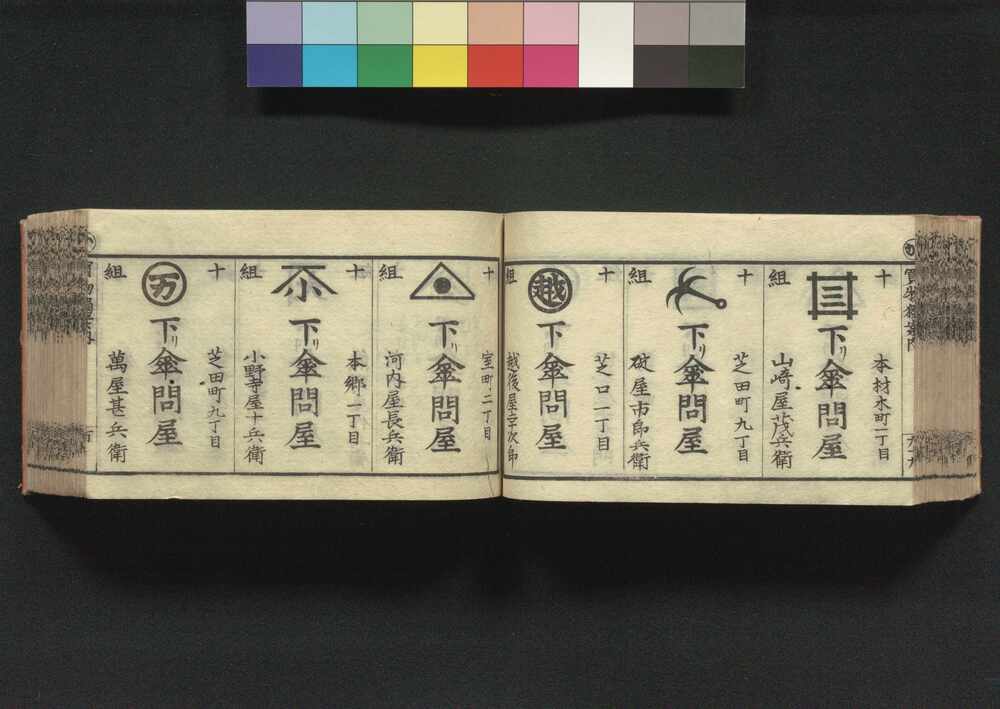 十
本材木町一丁目
三
下リ傘問屋
組
山崎屋茂兵衛
十
芝田町九丁目
下リ傘問屋
組
破屋市郎兵衛
十
芝口一丁目
越
下リ傘問屋
組
越後屋宇次郎
十
室町二丁目
下リ傘問屋
組
河内屋長兵衛
十
本郷一丁目
小
下リ傘問屋
組
小野寺屋十兵衛
十
芝田町九丁目
万
下リ傘問屋
組
萬屋甚兵衛